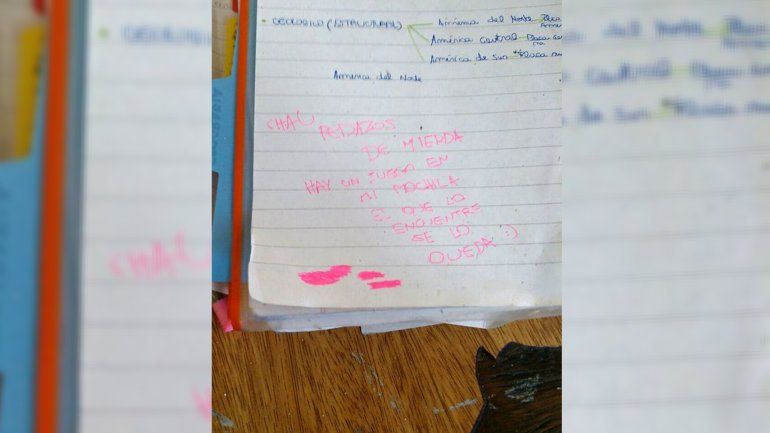 GEOLOGICO (ESTRUCTURAL)
América del Norte Placa
América Central Placa
América de Sur Placa
America del Node
CHAU PEDAZOS
DE MIERDA
HAY UN JUEGO EN
MI MOCHILA
EL QUE LO
ENCUENTRE
SE LO
QUEDA :)